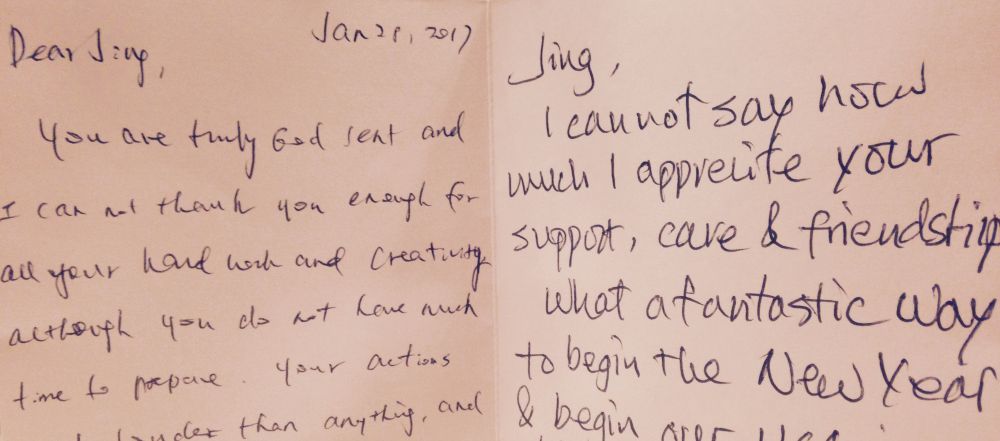 Jan 28, 2017
Dear Jing,
You are truly God sent and
I can not thank you enough for
all your hard work and creativity
although you do not have much
time to prepare. Your actions
louder than anything, and
Jing,
I cannot say how
much I apprecite your
support, care & friendship
What a fantastic way
to begin the New Year
& begin our